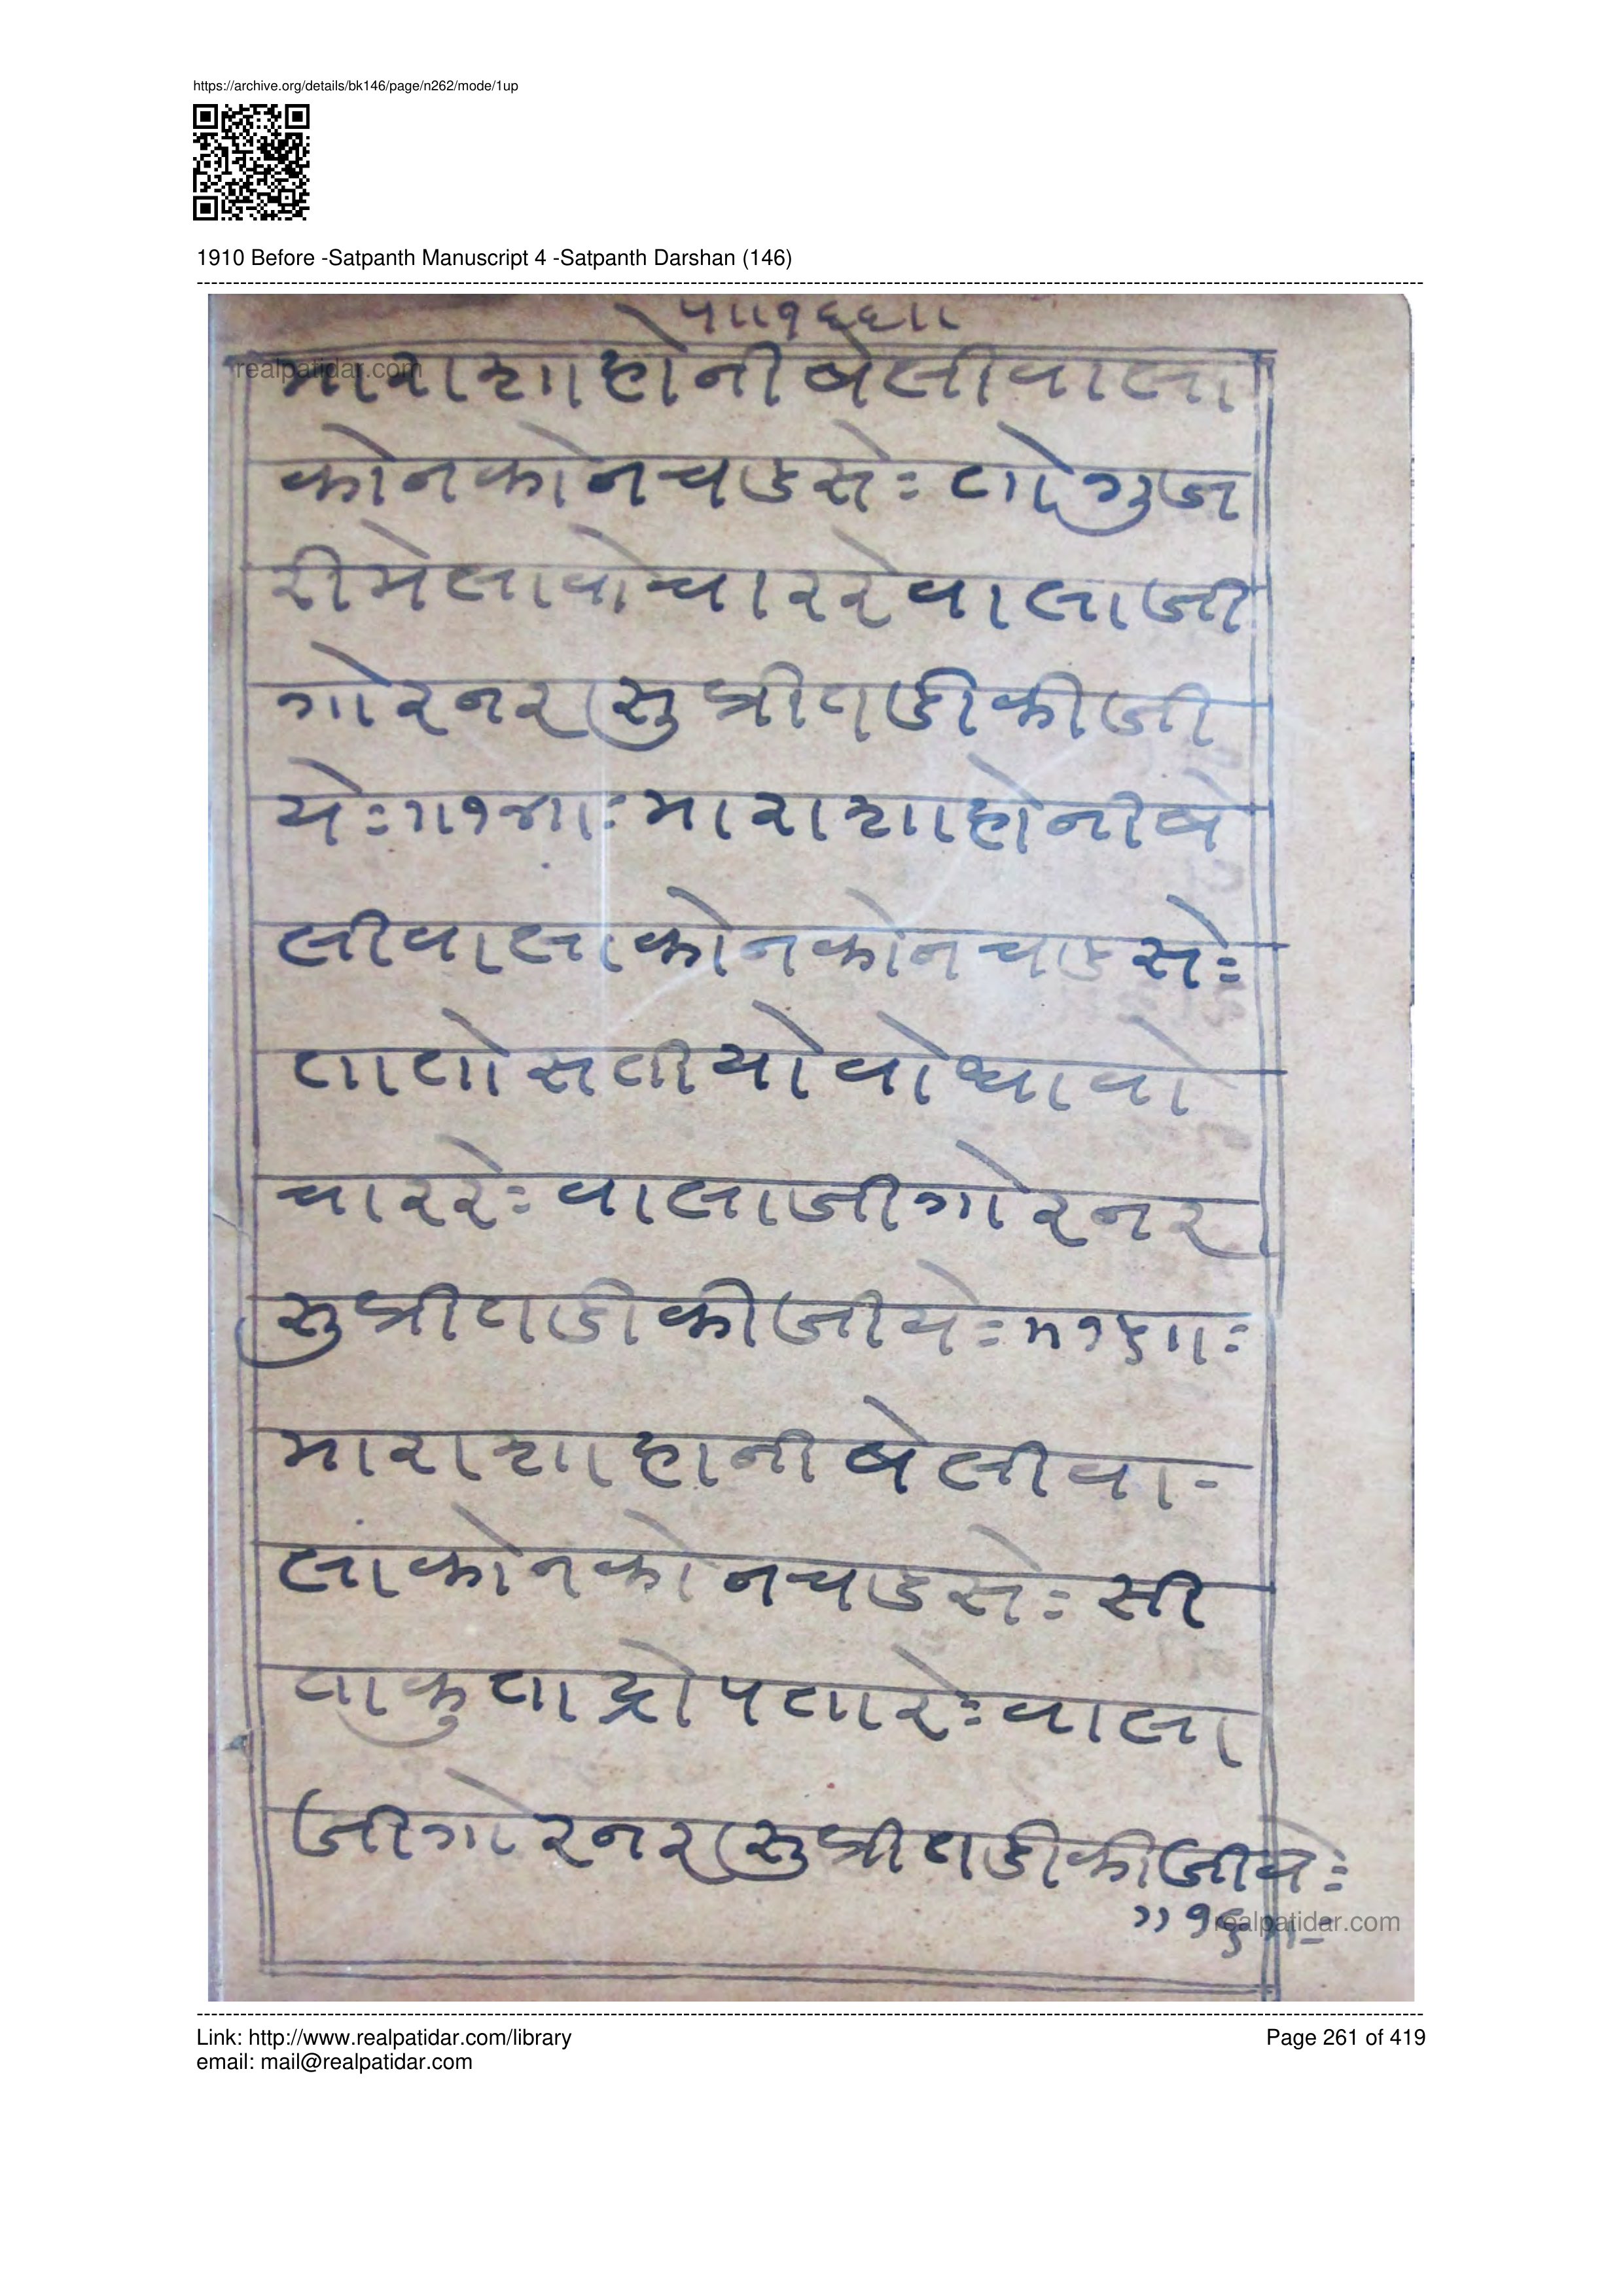 https://archive.org/details/bk146/page/n262/mode/1up
1910 Before -Satpanth Manuscript 4 -Satpanth Darshan (146)
५।।१६६।।
realpatidar.com
माराशाहोनीबेलीवाला
कोनकोनचडसेः तोगुज
रीमेलावोचाररेवालाजी
गोरनरसुप्रीतडीकीजी
येः।।१४।।ःमाराशाहोनीबे
लीवालाकोनकोनचाडसेः
तातोसतीयोवोधावो
चाररेःवालाजीगोरनर
सुप्रीतडीकीजीयेः।।१५।।ः
माराशाहानीबेलीवा-
लाकोनकोनचडसेः सी
ताकुताद्रोपतारेःवाला
जीगोरनरसुप्रीतडीकीजीयेः
।।१६।।-
realpatidar.com
Link: http://www.realpatidar.com/library
Page 261 of 419
email: mail@realpatidar.com